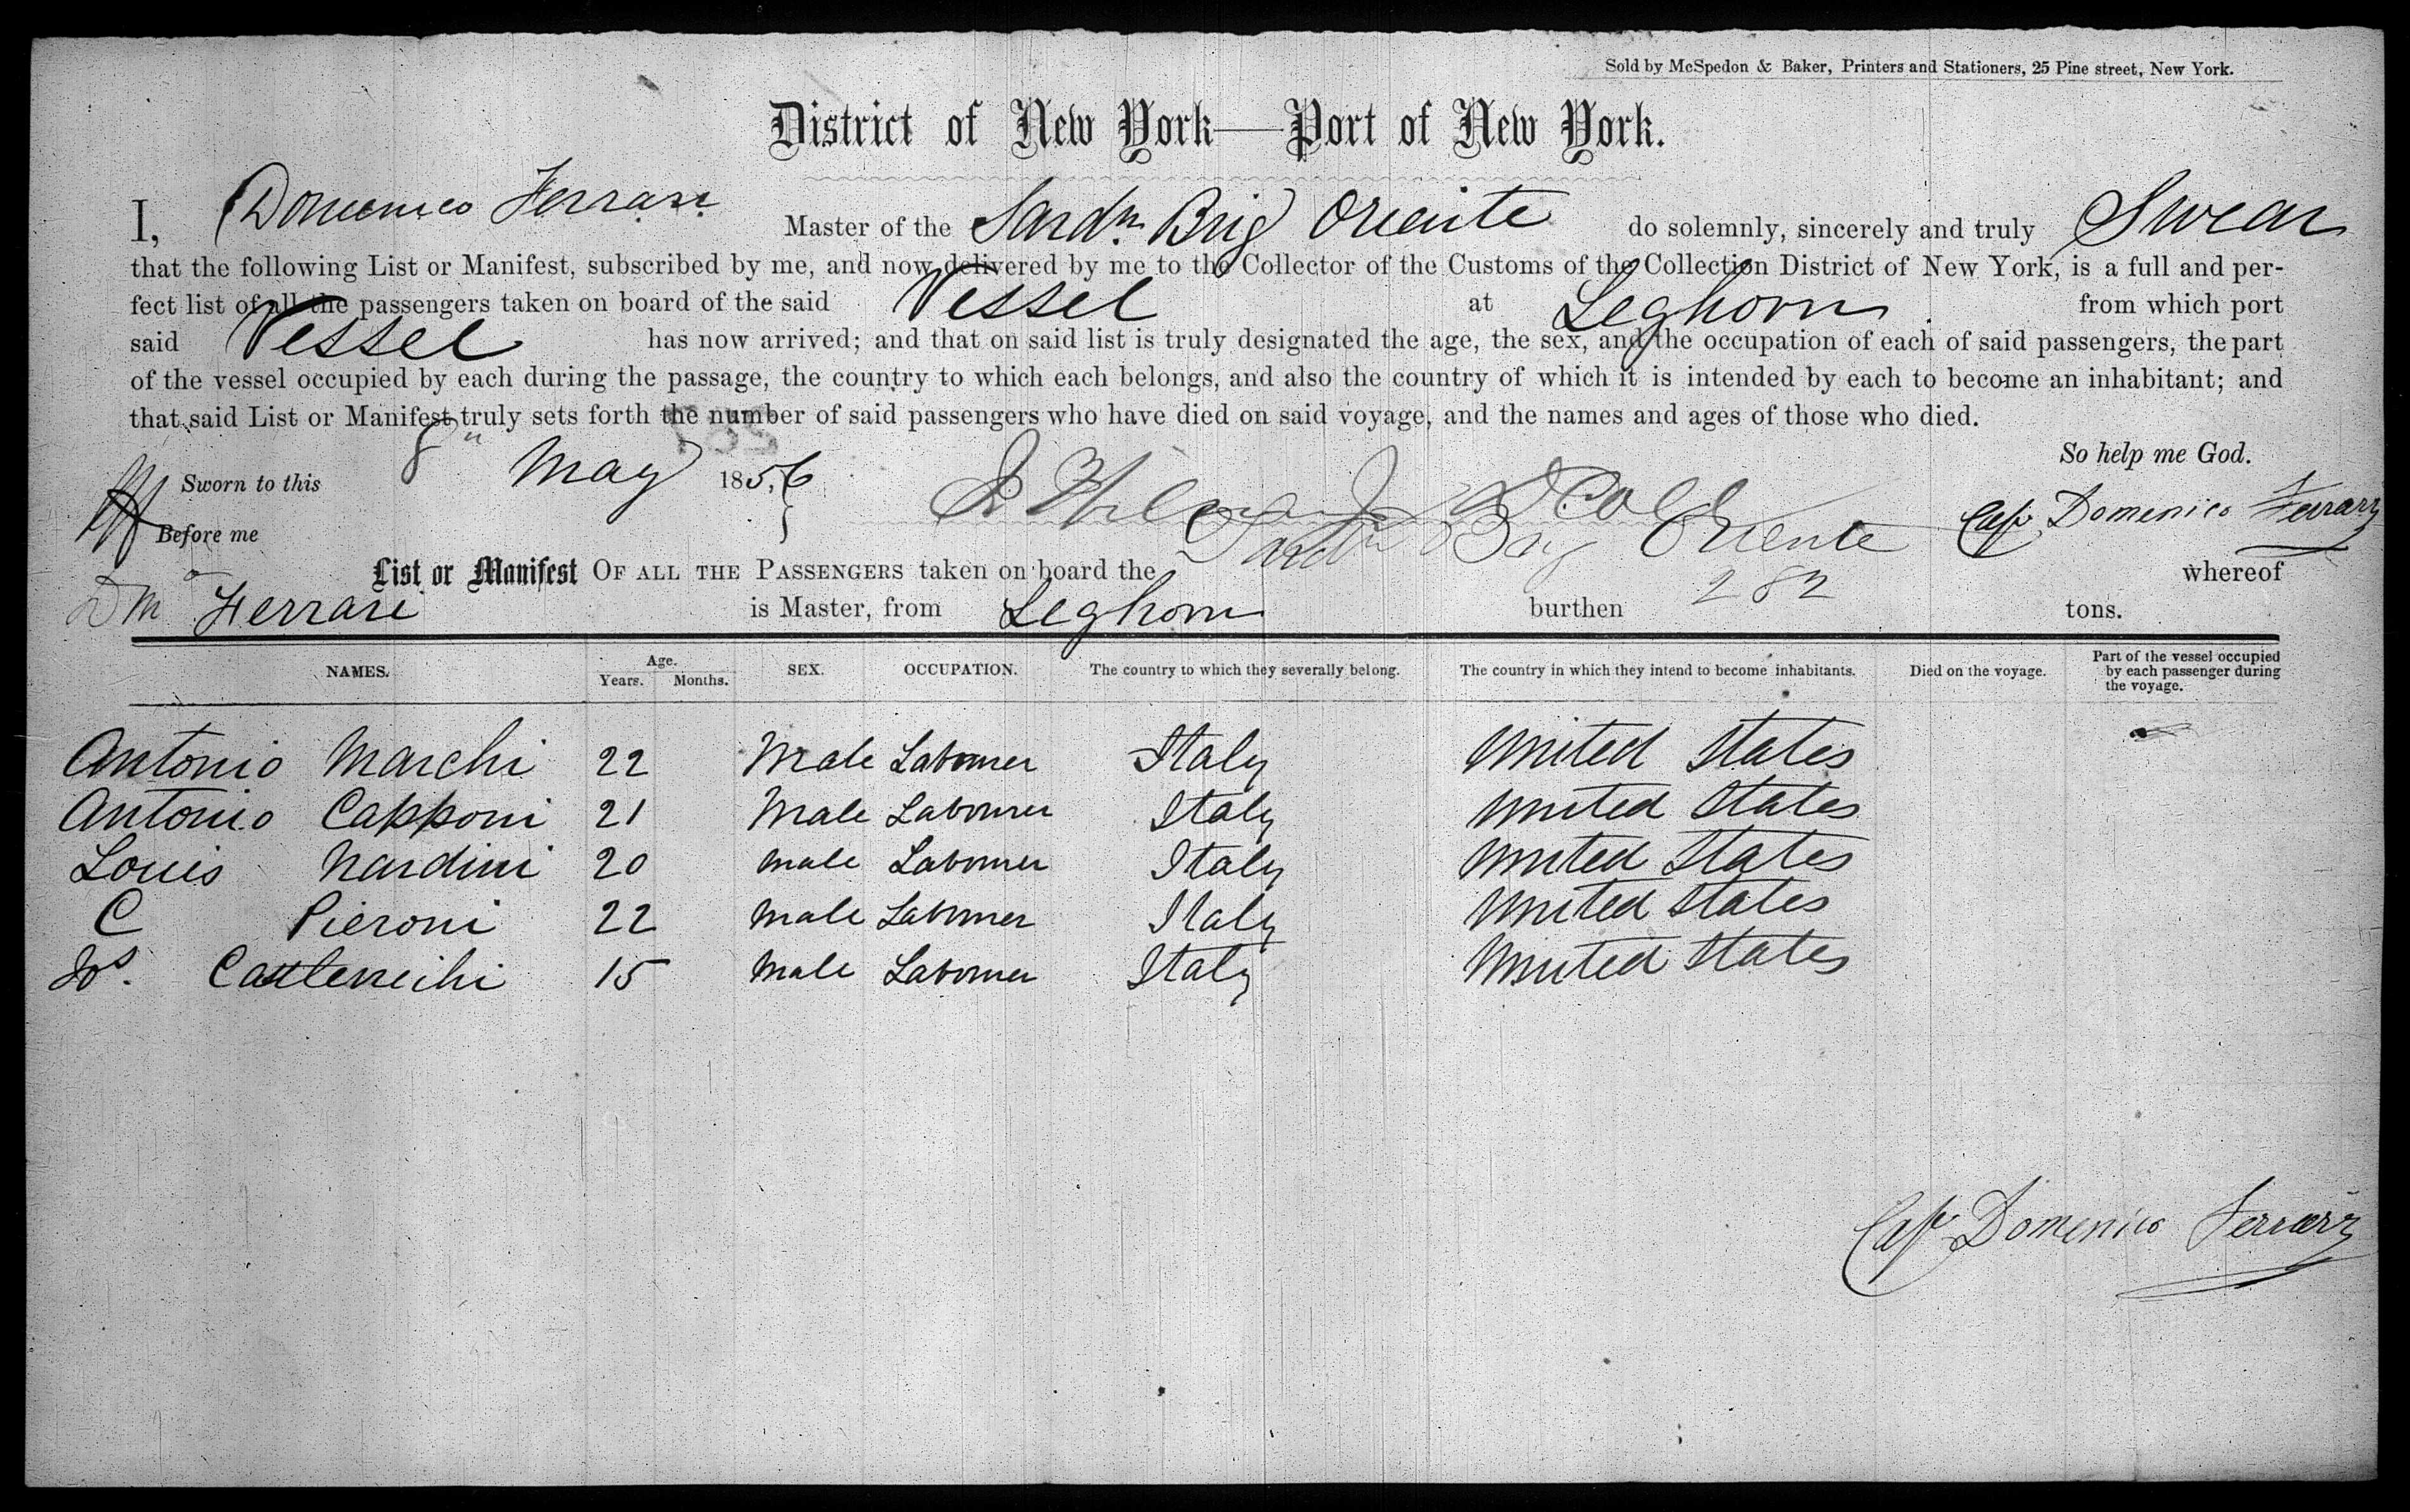 Sold by McSpedon & Baker, Printers and Stationers, 25 Pine street, New York.
District of New York—Port of New York.
I, Domenico Ferrari Master of the Sardn. Brig Oriente do solemnly, sincerely and truly Swear
that the following List or Manifest, subscribed by me, and now delivered by me to the Collector of the Customs of the Collection District of New York, is a full and per-
fect list of all the passengers taken on board of the said Vessel at Leghorn from which port
said Vessel has now arrived; and that on said list is truly designated the age, the sex, and the occupation of each of said passengers, the part
of the vessel occupied by each during the passage, the country to which each belongs, and also the country of which it is intended by each to become an inhabitant; and
that said List or Manifest truly sets forth the number of said passengers who have died on said voyage, and the names and ages of those who died.
So help me God.
Sworn to this 8" May 1856
Before me
Cap Domenico Ferrari
List or Manifest OF ALL THE PASSENGERS taken on board the Sardn Brig Oriente whereof
Dmo Ferrari is Master, from Leghorn burthen 282 tons.
NAMES. Age. Years. Months. SEX. OCCUPATION. The country to which they severally belong. The country in which they intend to become inhabitants. Died on the voyage. Part of the vessel occupied by each passenger during the voyage.
Antonio Marchi 22 Male Labourer Italy United States
Antonio Capponi 21 Male Labourer Italy United States
Louis Nardini 20 Male Labourer Italy United States
C Pieroni 22 Male Labourer Italy United States
Jos. 15 Male Labourer Italy United States
Cap Domenico Ferrari